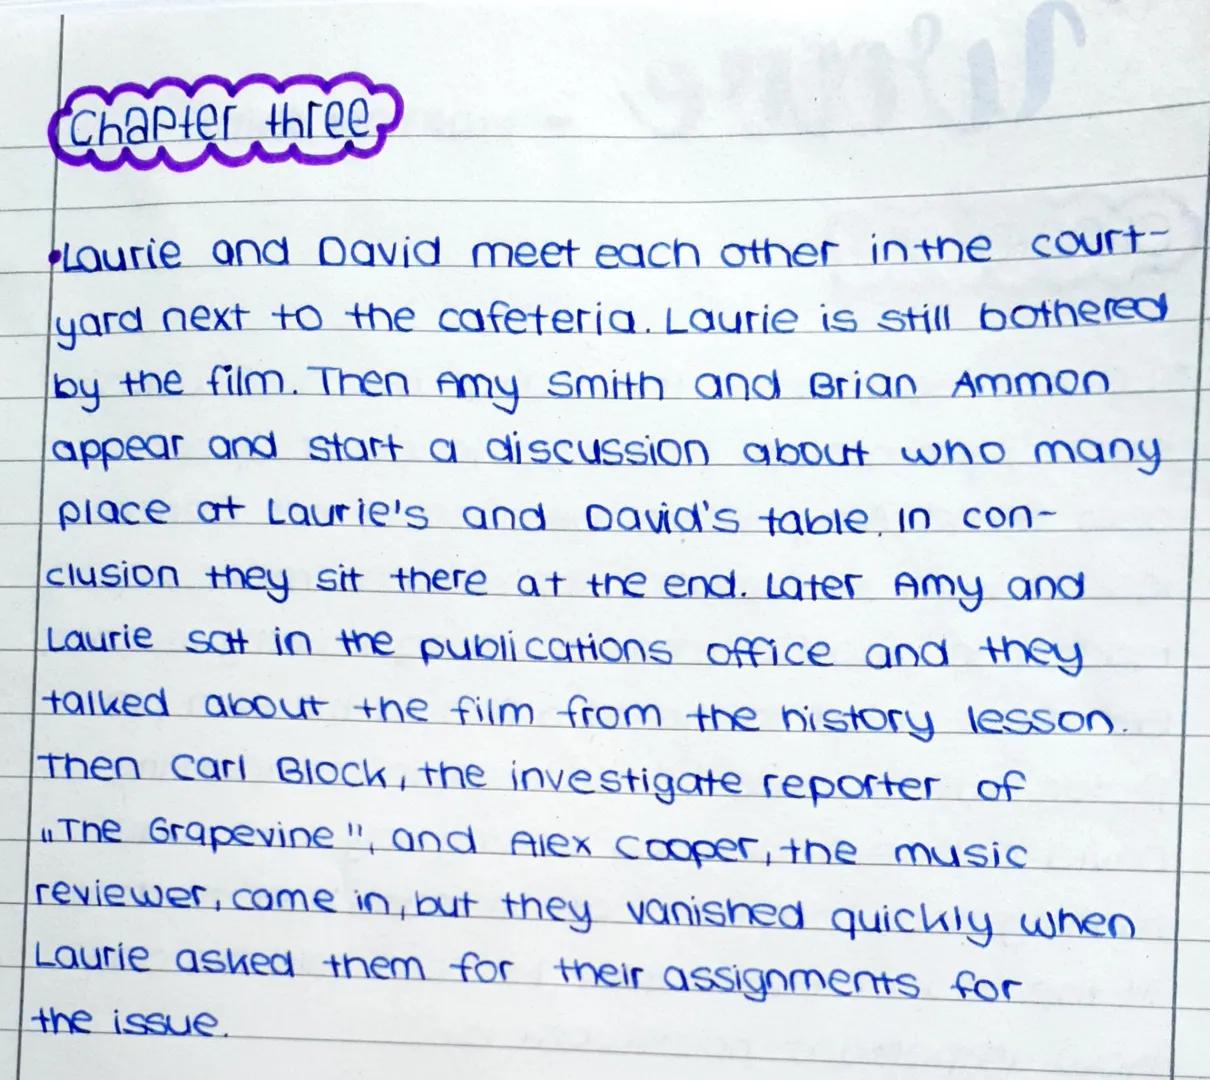 Chapter three
•Laurie and David meet each other in the court-
yard next to the cafeteria. Laurie is still bothered
by the film. Then Amy Smith and Brian Ammon
appear and start a discussion about who many
place at Laurie's and David's table. In con-
clusion they sit there at the end. Later Amy and
Laurie sat in the publications office and they
talked about the film from the history lesson.
Then Carl Block, the investigate reporter of
„The Grapevine", and Alex Cooper, the music
reviewer, came in, but they vanished quickly when
Laurie asked them for their assignments for
the issue.